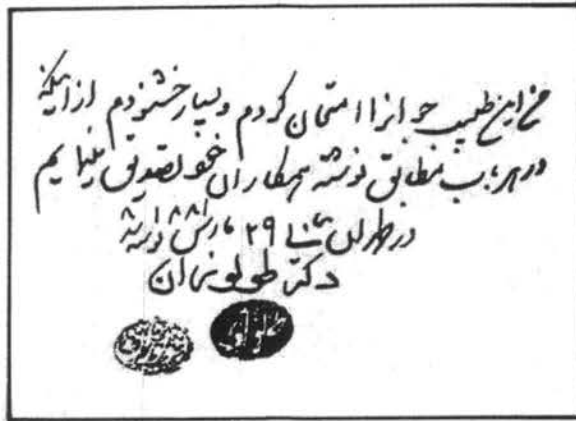 من این طبیب جوانرا امتحان کردم و بسیار خشنودم از اینکه
در هر باب مطابق نوشته همکاران خود تصدیق بنمایم
در طهران ۲۹ مارس ۱۸۸۱ نوشته شد
دکتر طولوزان